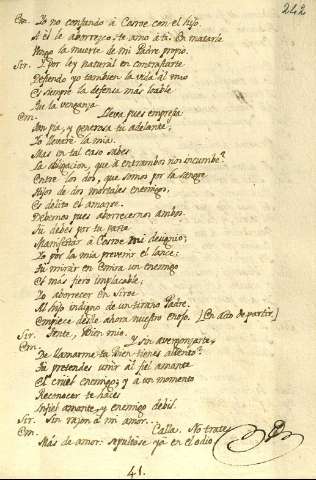 242
Em. Yo no confundo à Cosroe con el hijo.
A él le aborrezco, te amo à ti. En matarle
Vengo la muerte de mi Padre propio.
Sir. Y por ley natural en contraste
Defendo yo tambien la vida al mio
Es siempre la defensa mas loable
Que la venganza
Em. Lleva pues empresa
Son pia, y generosa tu adelante;
Yo llevaré la mia.
Mas en tal caso sabes
La obligacion, que à entrambos nos incumbe?
Entre los dos, que somos por la sangre
Hijos de dos mortales enemigos,
Es delito el amarse.
Debemos pues aborrecernos ambos.
Tu debes por tu parte
Manifestar à Cosroe mi designio;
Yo por la mia prevenir el lance:
Tu mirar en Emira un enemigo
El mas fiero implacable;
Yo aborrecer en Siroe
Al hijo indigno de un tirano Padre.
Empiece desde ahora nuestro enojo. [En acto de partir]
Sir. Tente, bien mio.
Em. Y sin avergonzarte,
De llamarme tu bien tienes aliento?
Tu pretendes unir al fiel amante
El cruel enemigo; y à un momento
Reconocer te haces
Infiel amante, y enemigo debil.
Sir. Sin razon à mi amor..
Em. Calla. No trates
Más de amor: sepultóse yá en el odio
41.